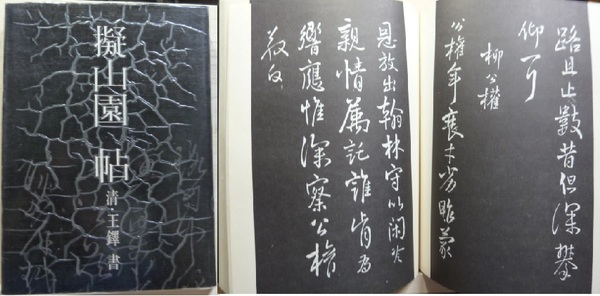 擬山園帖
清·王鐸書
路且止昔但深攀
仰耳
柳公權
公權年衰才劣昨蒙
恩放出翰林守以閑冷
親情屬託誰肯為
響應惟深察公權
敬白